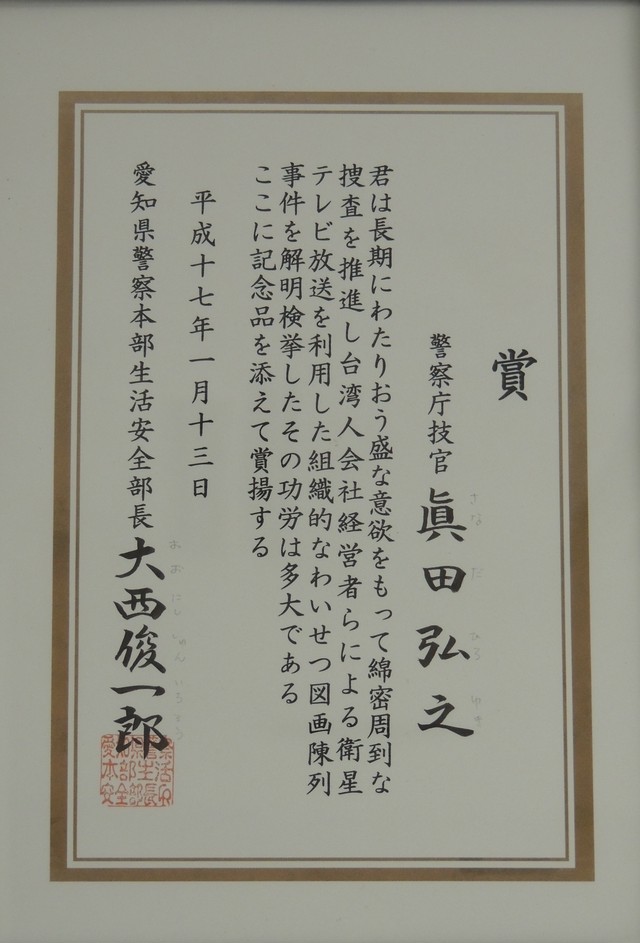 賞
警察庁技官 眞田弘之
さなだ ひろゆき
君は長期にわたりおう盛な意欲をもって綿密周到な
捜査を推進し台湾人会社経営者らによる衛星
テレビ放送を利用した組織的なわいせつ図画陳列
事件を解明検挙したその功労は多大である
ここに記念品を添えて賞揚する
平成十七年一月十三日
愛知県警察本部生活安全部長 大西俊一郎